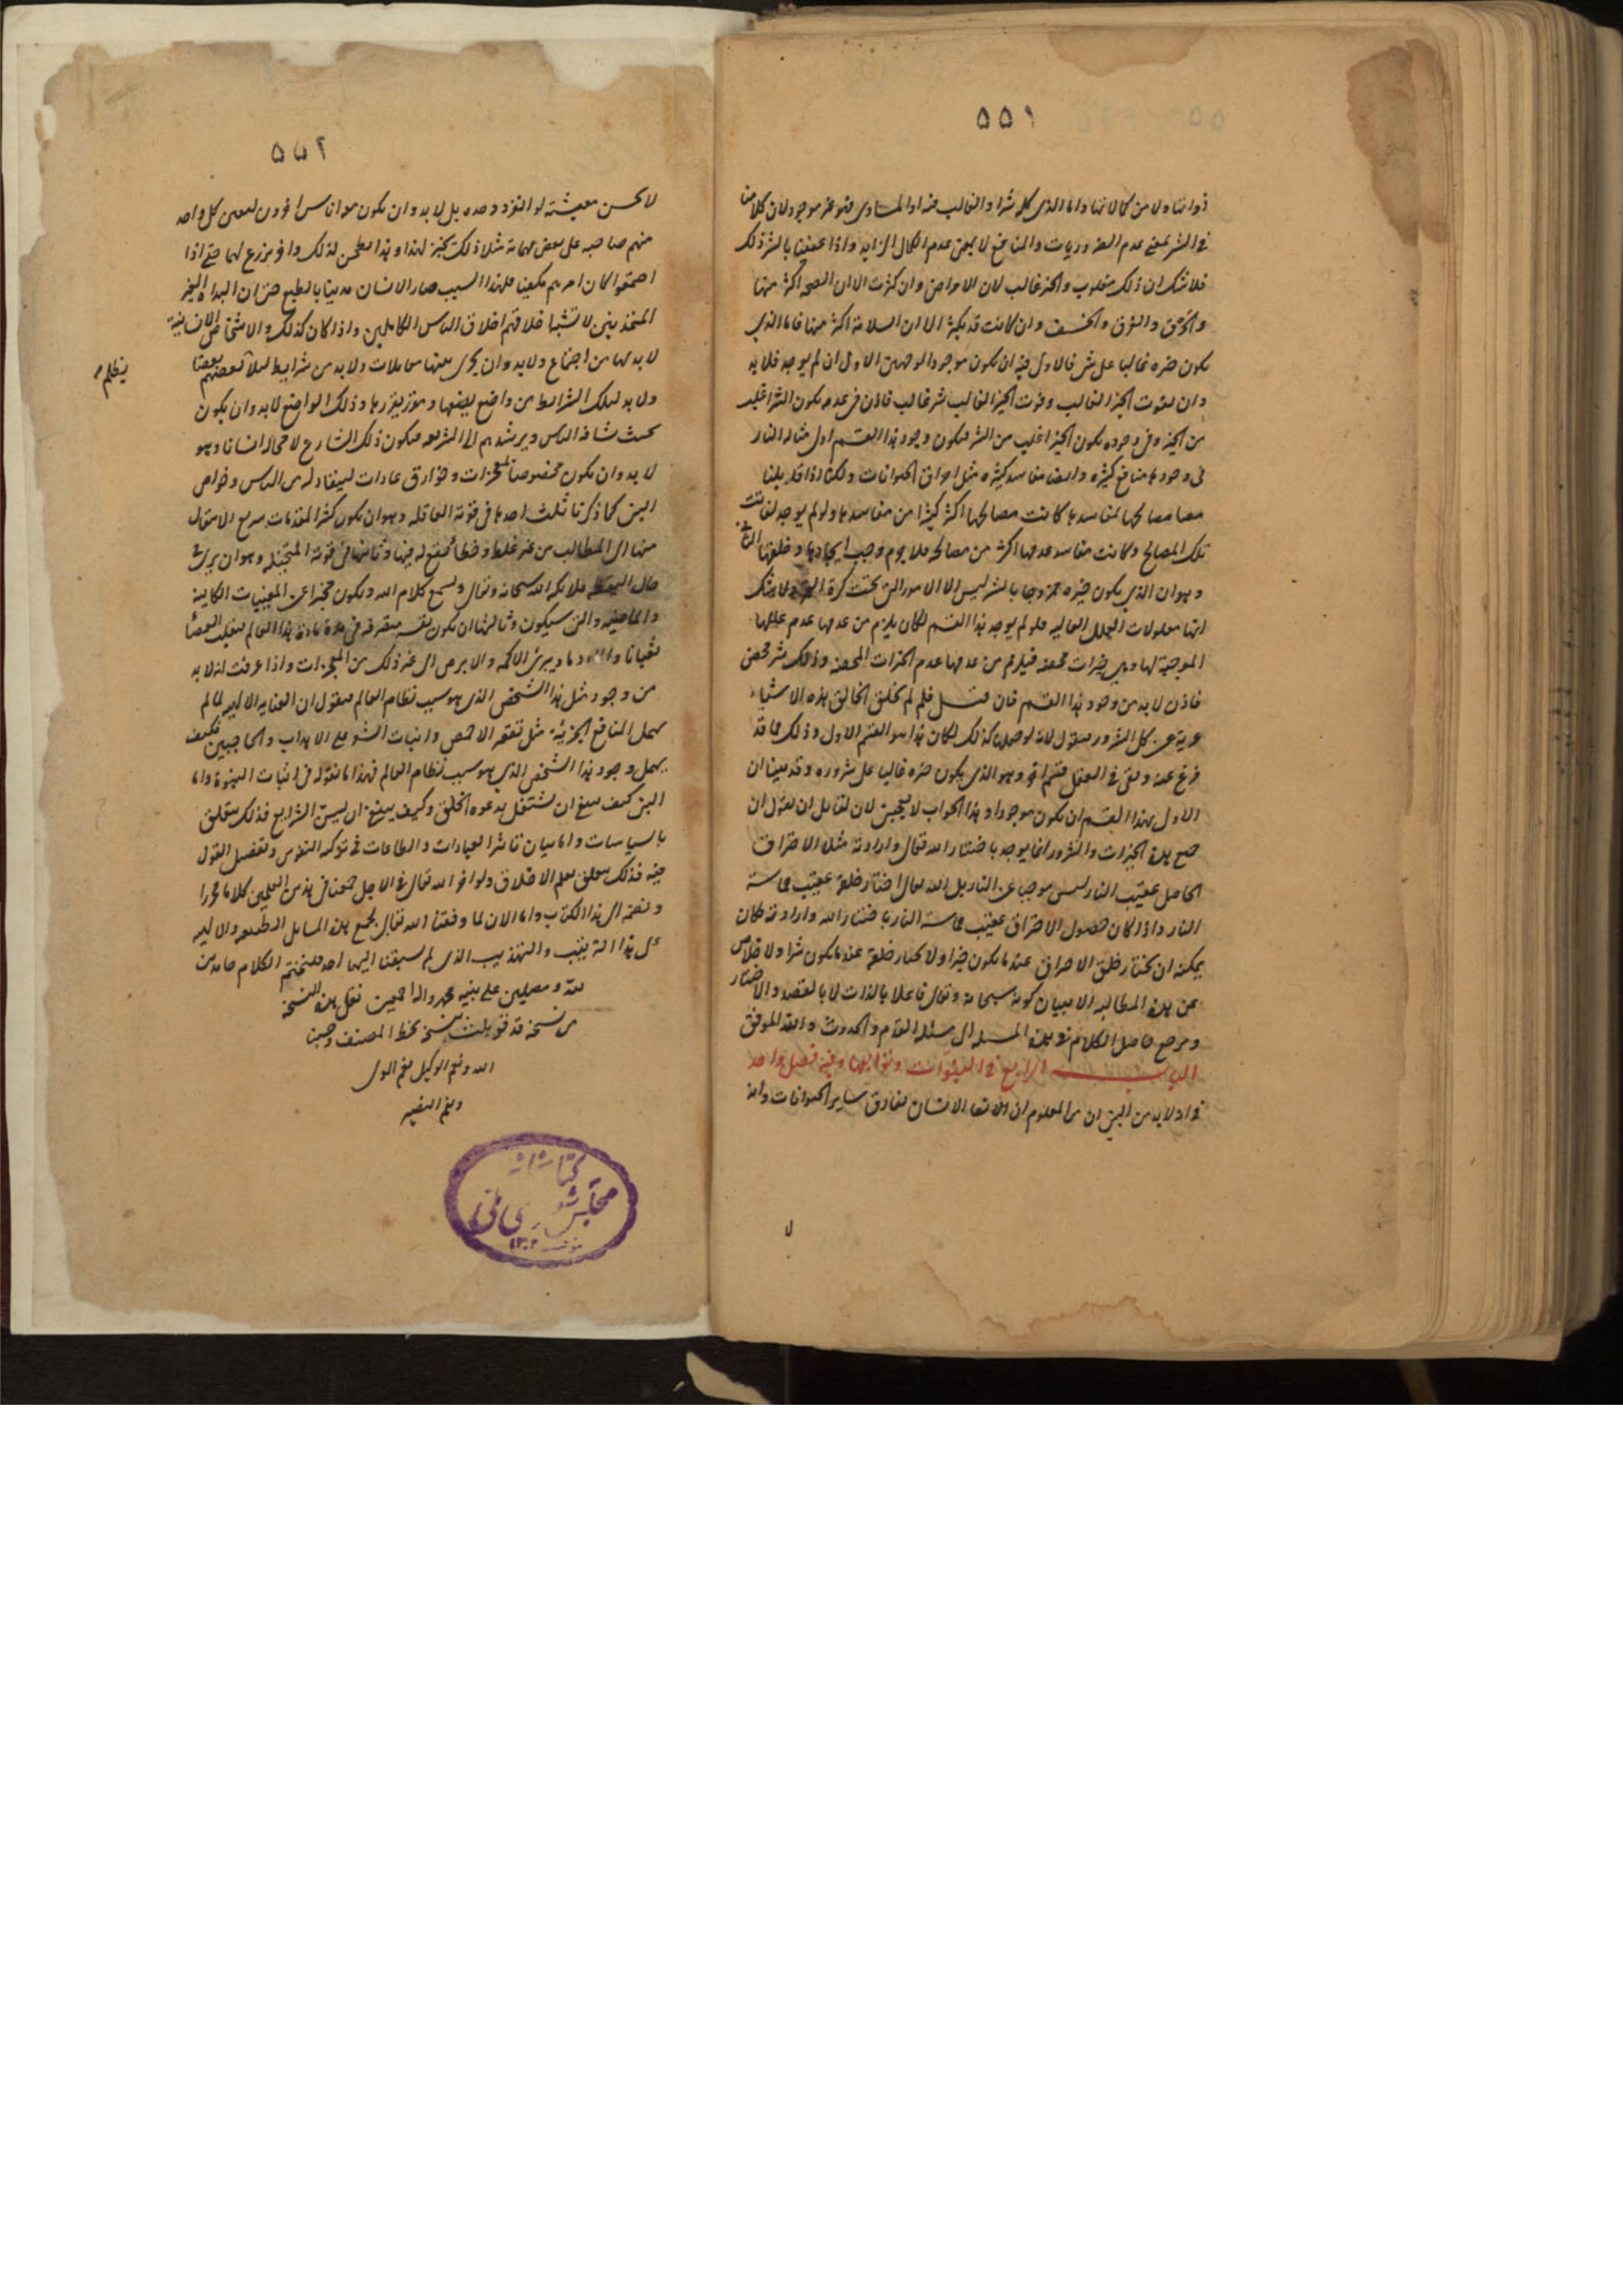 ٥٥١
ذواتنا ولا من كمالاتها واما الذى كله شر او الغالب فيه او المساوى فهو غير موجود لان كلامنا
فى الشر بمعنى عدم الضروريات والمنافع لا بمعنى عدم الكمال الزايد واذا عنينا بالشر ذلك
فلا شك ان ذلك مغلوب والخير غالب لان الامراض وان كثرت الا ان الصحه اكثر منها
والحرق والغرق والخسف وان كانت قد يكثر الا ان السلامة اكثر منها فاما الذى
يكون خيره غالبا على شره فالاولى فيه ان يكون موجودا لوجهين الاول ان لم يوجد فلا بد
وان يفوت الخير الغالب وفوت الخير الغالب شر غالب فاذن فى عدمه يكون الشر اغلب
من الخير وفى وجوده يكون الخير اغلب من الشر فيكون وجود هذا القسم اولى مثاله النار
فى وجودها منافع كثيره وايضا مفاسد كثيره مثل احراق الحيوانات ولكنا اذا قابلنا
مصالحها بمفاسدها كانت مصالحها اكثر كثيرا من مفاسدها ولو لم يوجد لفاتت
تلك المصالح وكانت مفاسد عدمها اكثر من مصالحه فلا جرم وجب ايجادها وخلقها الثانى
وهو ان الذى يكون خيره ممزوجا بالشر ليس الا الامور التى تحت كرة القمر ولا شك
انها معلولات العلل العاليه فلو لم يوجد هذا القسم لكان يلزم من عدمها عدم عللها
الموجبة لها وهى خيرات محضه فيلزم من عدمها عدم الخيرات المحضه وذلك شر محض
فاذن لا بد من وجود هذا القسم فان قيل فلم لم يخلق الخالق هذه الاشياء
عرية عن كل الشرور فنقول لانه لو جعلها كذلك لكان هذا هو القسم الاول وذلك مما قد
فرغ عنه وبقى فى العقل قسم اخر وهو الذى يكون خيره غالبا على شروره وقد بينا ان
الاولى بهذا القسم ان يكون موجودا وهذا الجواب لا يعجبنى لان لقائل ان يقول ان
جميع هذه الخيرات والشرور انما يوجد باختيار الله تعالى وارادته مثلا الاحتراق
الحاصل عقيب النار ليس موجبا عن النار بل الله تعالى اختار خلقه عقيب مماسة
النار واذا كان حصول الاحتراق عقيب مماسة النار باختيار الله وارادته فكان
يمكنه ان يختار خلق الاحراق عندما يكون خيرا ولا يختار خلقه عندما يكون شرا ولا خلاص
عن هذه المطالبه الا ببيان كونه سبحانه وتعالى فاعلا بالذات لا بالقصد والاختيار
ويرجع حاصل الكلام فى هذه المسئله الى مسئله القدم والحدوث والله الموفق
الباب الرابع فى النبوات وتوابعها وفيه فصل واحد
فى انه لابد من النبى ان من المعلوم ان الانسان يفارق ساير الحيوانات وانه
لا
٥٥٢
لا يحسن معيشته لو انفرد وحده بل لا بد وان يكون معه اناس اخرون ليعين كل واحد
منهم صاحبه على بعض مهماته مثلا ذلك يخبز لهذا وهذا يطحن لذلك واخر يزرع لهما حتى اذا
اجتمعوا كان امرهم مكفيا فلهذا السبب صار الانسان مدنيا بالطبع حتى ان البداة الغير
المتمدنين لا تشبه اخلاقهم اخلاق الناس الكاملين واذا كان كذلك والاشخاص الانسانية
لا بد لها من اجتماع ولابد وان يجرى بينها معاملات ولا بد من شرايط لئلا يظلم بعضهم بعضا
ولا بد لتلك الشرايط من واضع يضعها ومقرر يقررها وذلك الواضع لابد وان يكون
بحيث يشافه الناس ويرشدهم الى الشريعه فيكون ذلك الشارع لا محاله انسانا وهو
لا بد وان يكون مخصوصا بمعجزات وخوارق عادات لينقاد له الناس وخواص
النبى كما ذكرنا ثلث احدها فى قوته العاقله وهو ان يكون كثير المقدمات سريع الانتقال
منها الى المطالب من غير غلط وخطأ يقع له فيها وثانيها فى قوته المتخيله وهو ان يرى فى
حال اليقظه ملائكة الله سبحانه وتعالى ويسمع كلام الله ويكون مخبرا عن المغيبات الكاينة
والماضيه والتى سيكون وثالثها ان يكون نفسه متصرفه فى مادة هذا العالم فيقلب العصا
ثعبانا والماء دما ويبرئ الاكمه والابرص الى غير ذلك من المعجزات واذا عرفت انه لا بد
من وجود مثل هذا الشخص الذى هو سبب نظام العالم فنقول ان العنايه الالهيه لما لم
يهمل المنافع الجزئية مثل تقعير الاخمص وانبات الشعر على الاهداب والحاجبين فكيف
يهمل وجود هذا الشخص الذى هو سبب نظام العالم فهذا ما نقوله فى اثبات النبوة واما
النبى كيف ينبغى ان يشتغل بدعوه الخلق وكيف ينبغى ان يسن الشرايع فذلك يتعلق
بالسياسات واما بيان تاثير العبادات والطاعات فى تزكيه النفوس وتفصيل القول
فيه فذلك يتعلق بعلم الاخلاق ولو اخر الله تعالى فى الاجل جمعنا فى هذين العلمين كلاما محررا
وضمه الى هذا الكتاب واما الان لما وفقنا الله تعالى لجمع هذه المسايل الطبيعيه والالهيه
على هذا الترتيب والتهذيب الذى لم يسبقنا اليها احد فلنختتم الكلام حامدين
لله ومصلين على نبيه محمد واله اجمعين نقل هذه النسخة
من نسخة قد قوبلت بنسخة بخط المصنف وحسبنا
الله ونعم الوكيل نعم المولى
ونعم النصير
كتابخانه
مجلس شوراى ملى
١٣٠٢